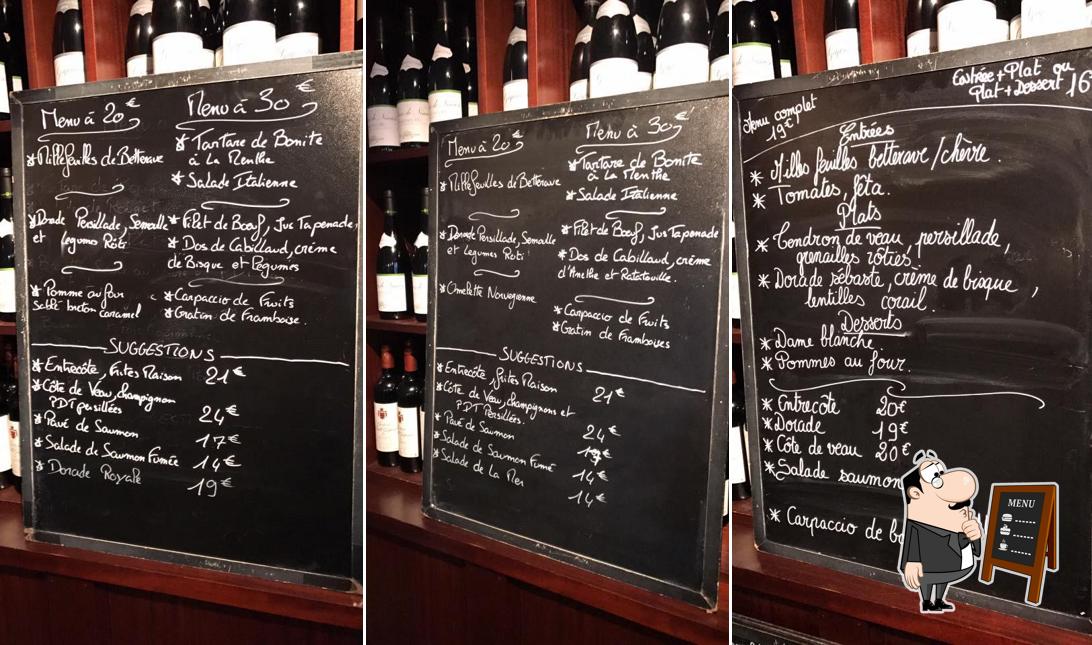 Menu à 20€
*Millefeuilles de Betterave
*Dorade Persillade, Semoulle
et legumes Roti
*Pomme au four
sablé breton caramel
Menu à 30€
*Tartare de Bonite
à La Menthe
*Salade Italienne
*Filet de Boeuf, Jus Tapenade
*Dos de Cabillaud, crème
de Bisque et Légumes
*Carpaccio de Fruits
*Gratin de Framboise.
SUGGESTIONS
*Entrecôte, frites Maison 21€
*Côte de Veau, champignon
PDT persillées 24€
*Pavé de Saumon 17€
*Salade de Saumon Fumée 14€
*Dorade Royale 19€
Menu à 20€
*Millefeuilles de Betterave
*Dorade Persillade, Semoulle
et Legumes Roti
*Omelette Norvegienne
Menu à 30€
*Tartare de Bonite
à La Menthe
*Salade Italienne
*Filet de Boeuf, Jus Tapenade
*Dos de Cabillaud, crème
d'Anethe et Ratatouille.
*Carpaccio de Fruits
*Gratin de Framboises
SUGGESTIONS
*Entrecôte, frites Maison 21€
*Côte de Veau, champignons et
PDT Persillées. 24€
*Pavé de Saumon
*Salade de Saumon Fumé 14€
*Salade de La Mer 14€
Menu complet
19€
Entrée+Plat ou
Plat+Dessert 16
Entrées
* Milles feuilles betterave/chèvre.
* Tomates, féta.
Plats
* Tendron de veau, persillade,
grenailles rôties
* Dorade sébaste, crème de bisque,
lentilles corail.
Desserts
* Dame blanche.
* Pommes au four.
* Entrecôte 20€
* Dorade 19€
* Côte de veau 20€
* Salade saumon
* Carpaccio de
MENU